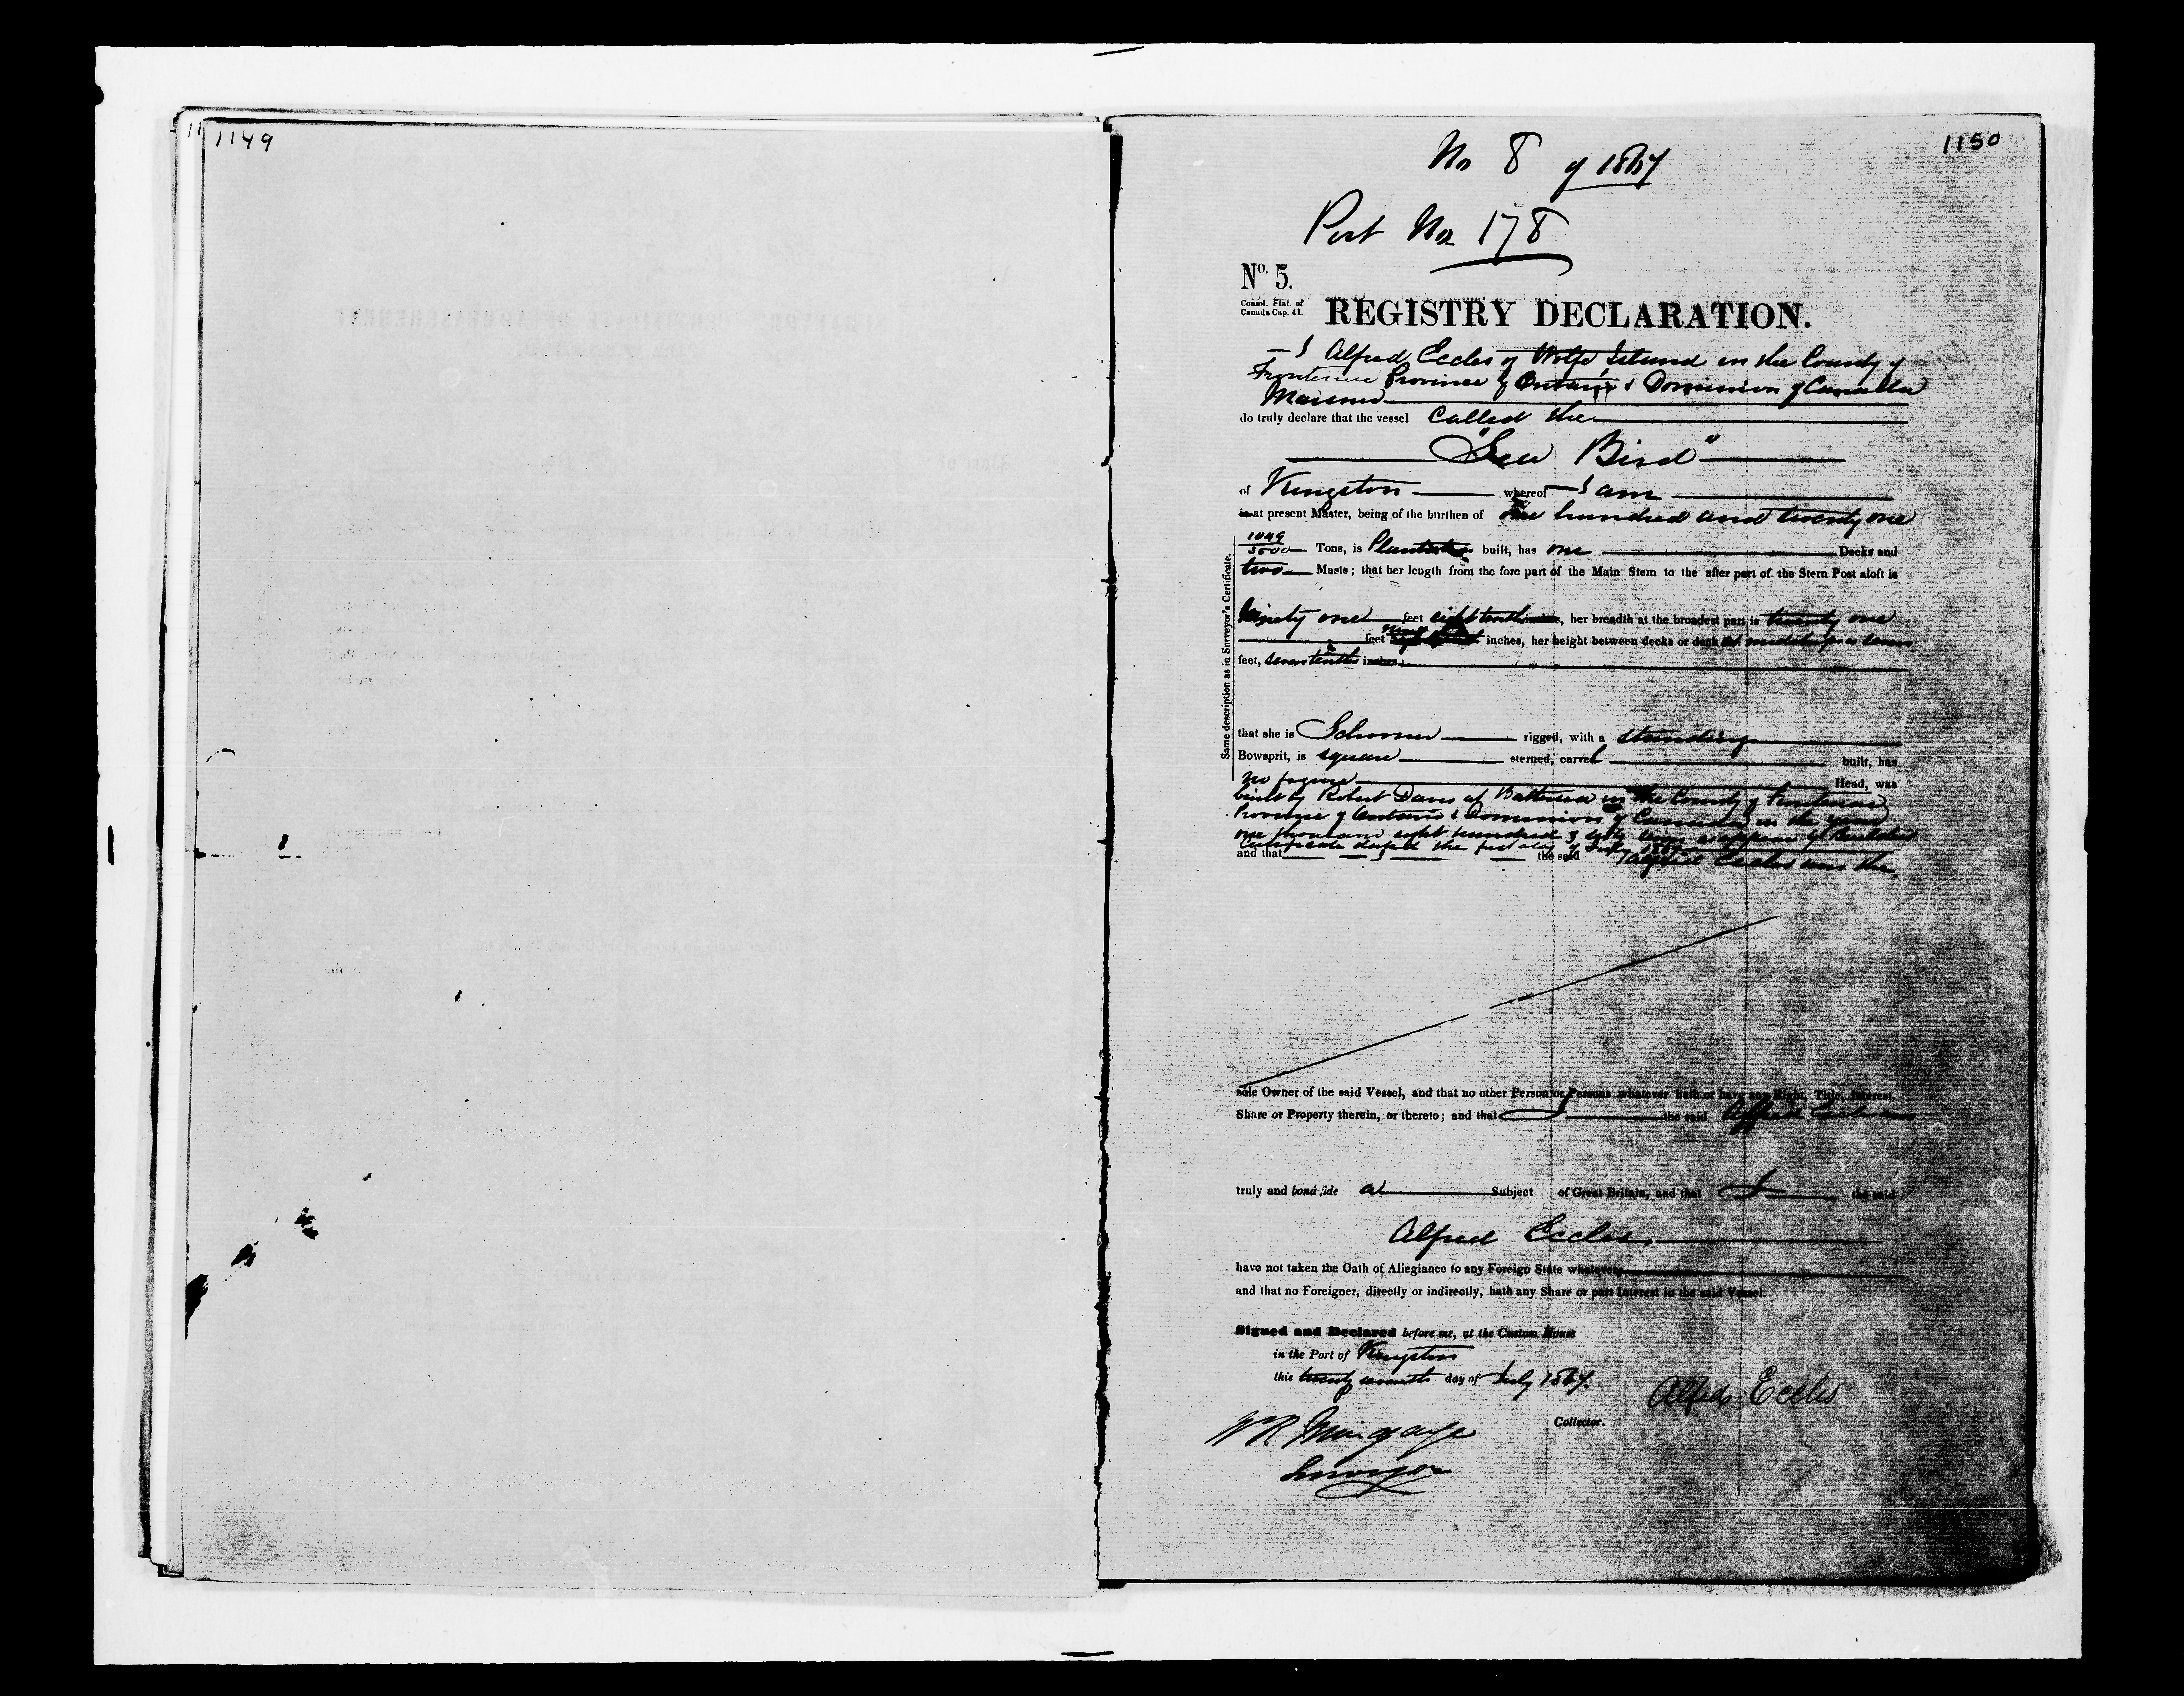 1149
1150
No 8 of 1867
Port No 178
No. 5.
Consol. Stat. of
Canada Cap. 41.
REGISTRY DECLARATION.
I Alfred Eccles of Wolfe Island in the County of
Frontenac Province of Ontario & Dominion of Canada
Mariner
do truly declare that the vessel called the
"Sea Bird"
of Kingston whereof I am
is at present Master, being of the burthen of one hundred and twenty one
Tons, is built, has one Decks and
two Masts; that her length from the fore part of the Main Stem to the after part of the Stern Post aloft is
Ninety one feet eight tenths inches, her breadth at the broadest part is twenty one
feet inches, her height between decks or deck at midships is
feet, seven tenths inches;
Same description as in Surveyor's Certificate.
that she is Schooner rigged, with a standing
Bowsprit, is square sterned, carvel built, has
no figure Head, was
built by Robert Davis at Battersea in the County of Frontenac
Province of Ontario & Dominion of Canada in the year
one thousand eight hundred & sixty as appears by Builders
Certificate dated the first day of July
and that the said Alfred Eccles am the
sole Owner of the said Vessel, and that no other Person or Persons whatever hath or have any Right, Title, Interest,
Share or Property therein, or thereto; and that I the said Alfred Eccles am
truly and bonâ fide a Subject of Great Britain, and that I the said
Alfred Eccles
have not taken the Oath of Allegiance to any Foreign State whatever
and that no Foreigner, directly or indirectly, hath any Share or part Interest in the said Vessel.
Signed and Declared before me, at the Custom House
in the Port of Kingston
this twenty seventh day of July 1867.
Alfred Eccles
Collector.
Surveyor